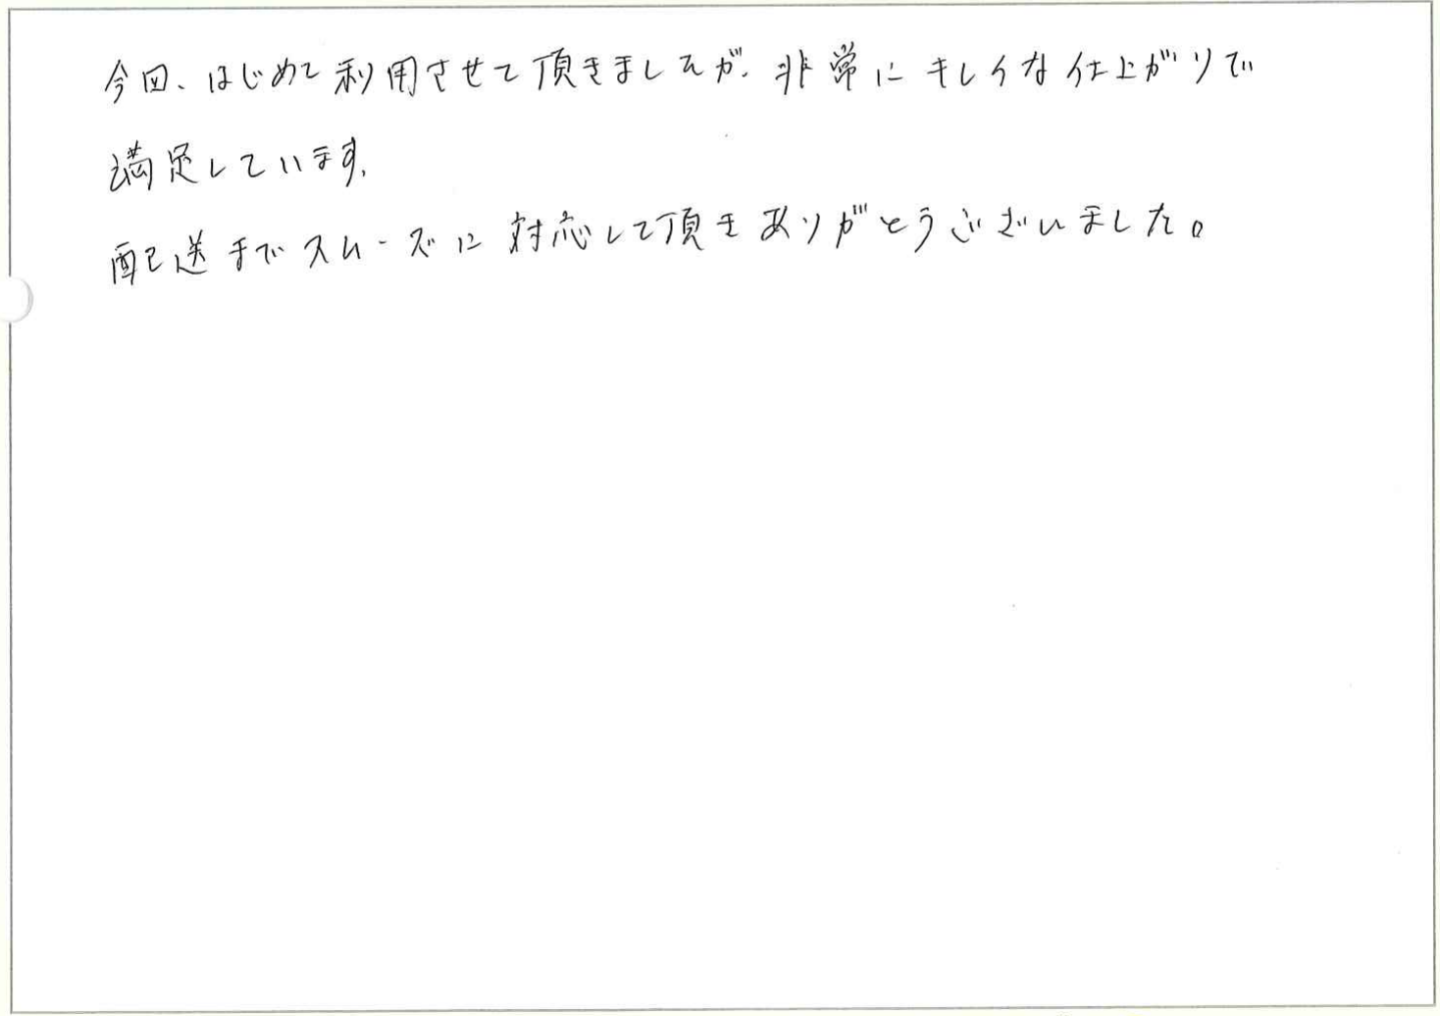 今回、はじめて利用させて頂きましたが、非常にキレイな仕上がりで
満足しています。
配送までスムーズに対応して頂きありがとうございました。